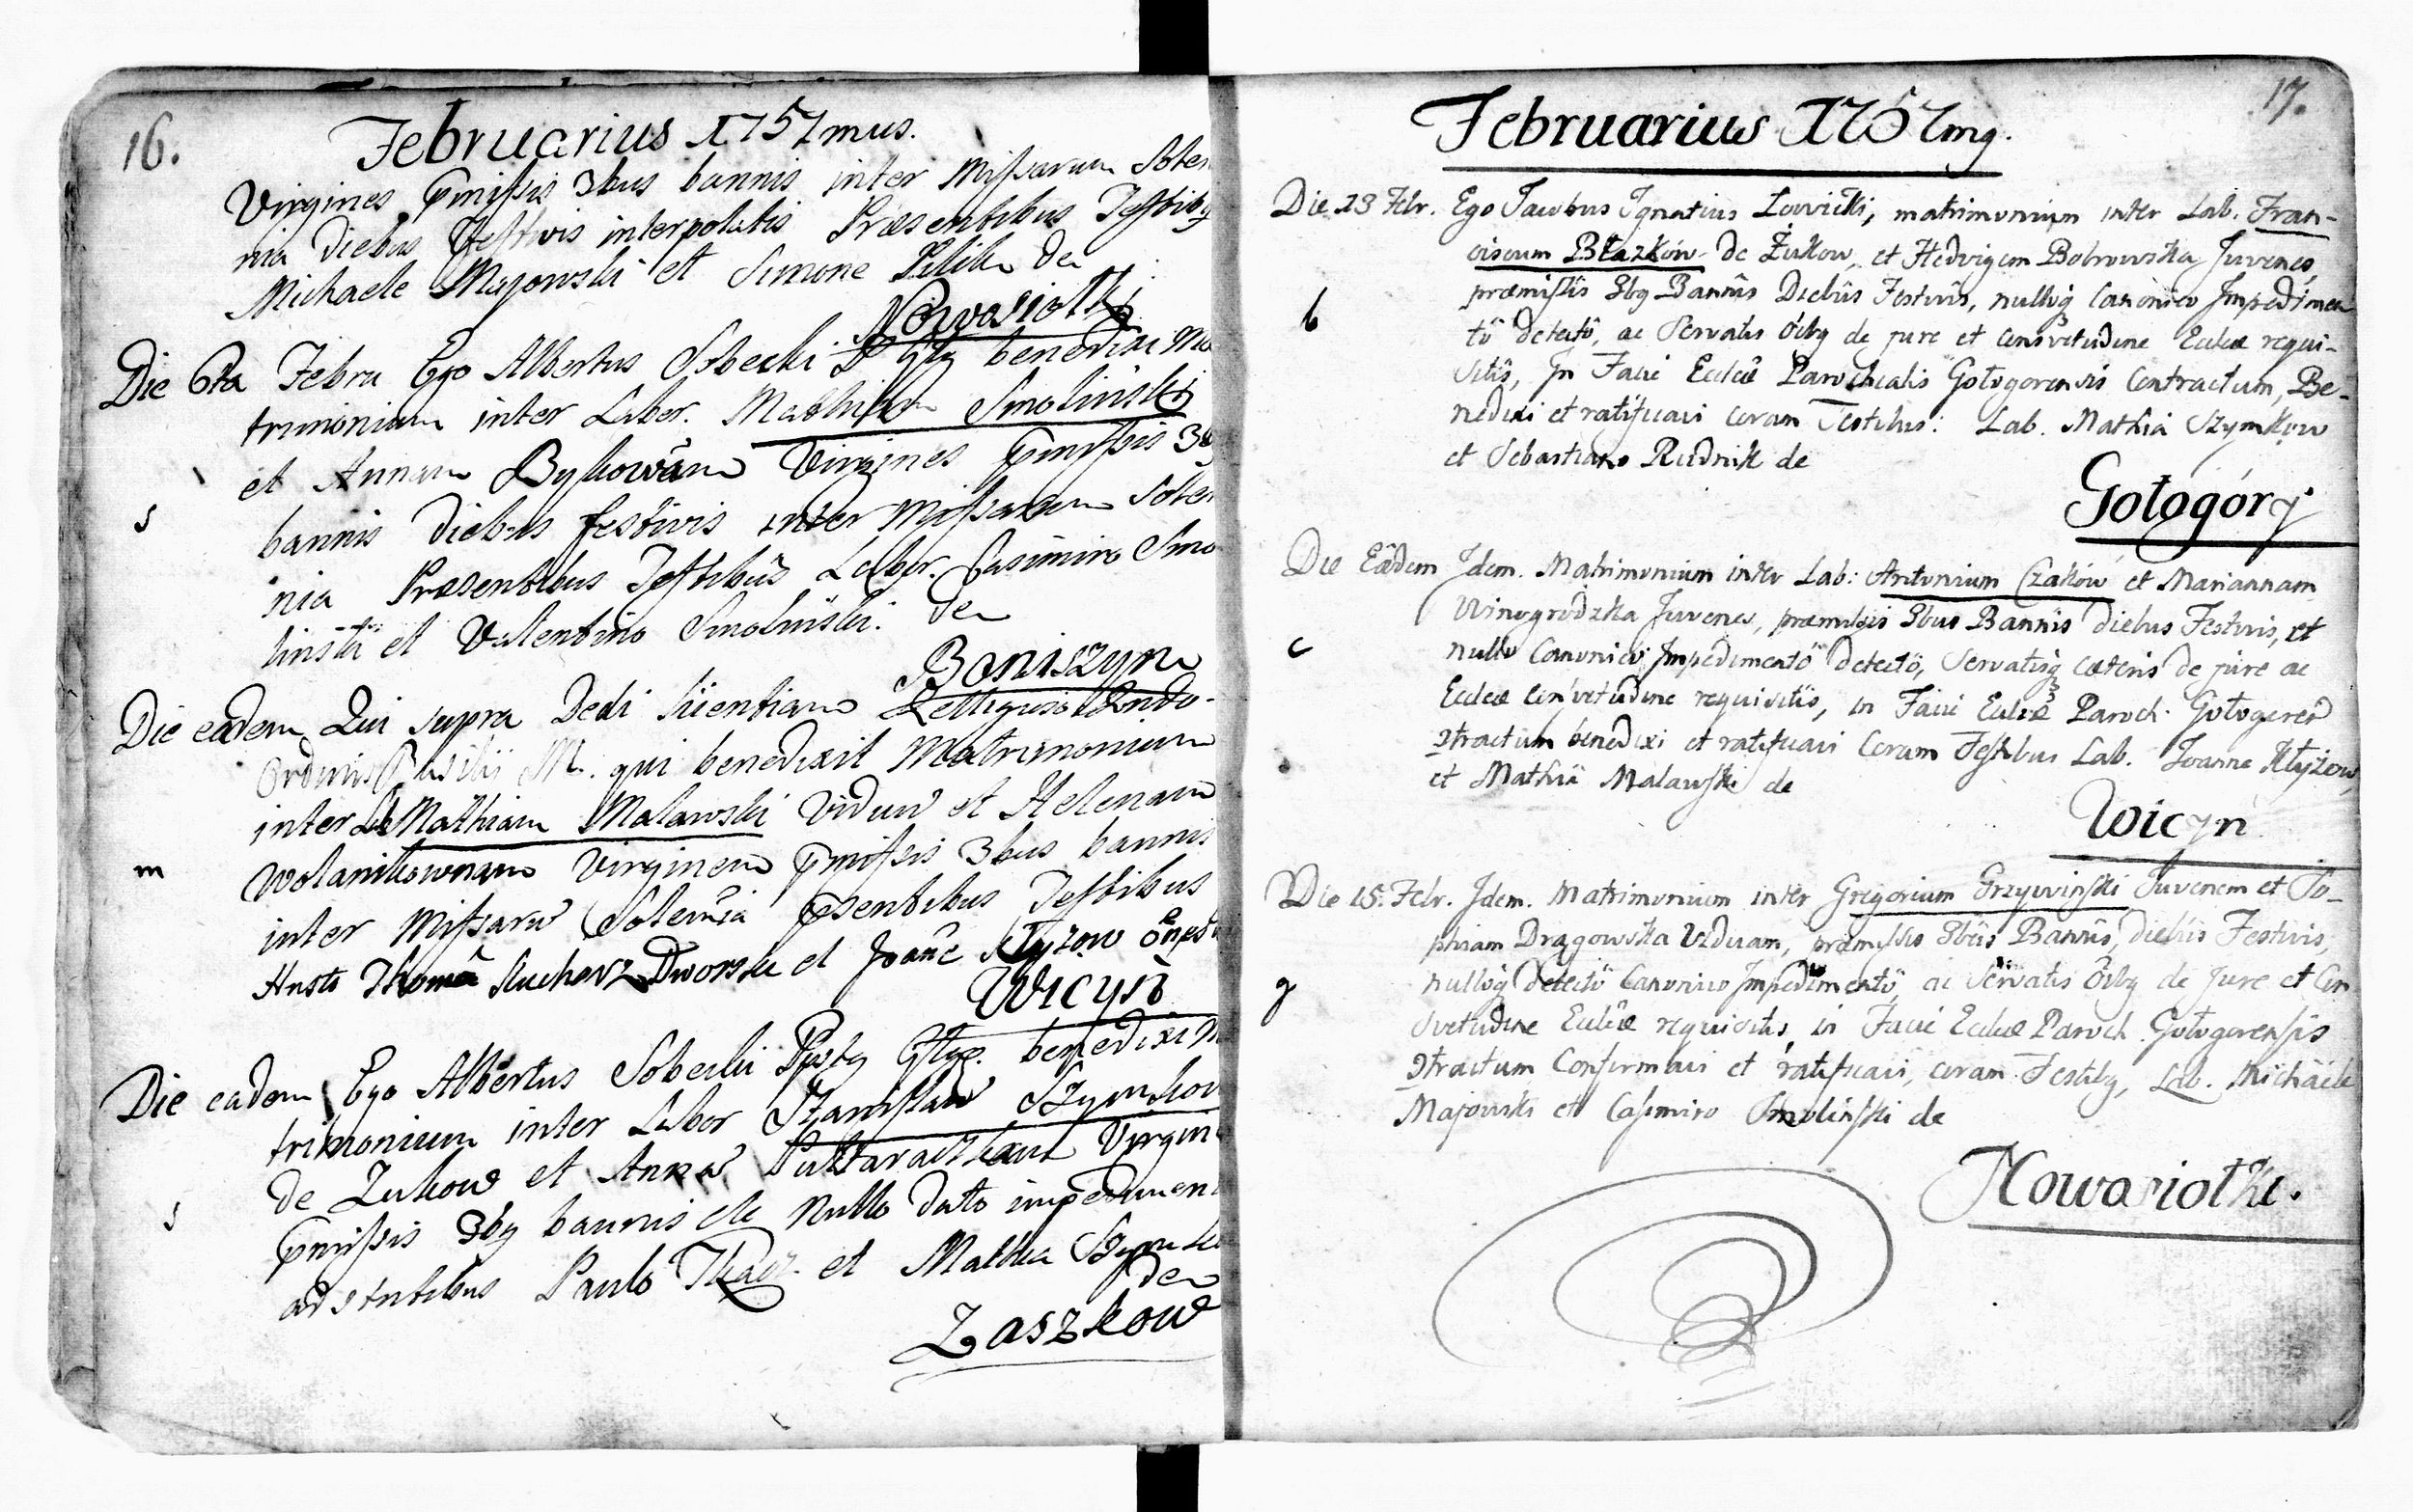 16.
Februarius 1757mus.
Virgines pmissis 3bus bannis inter Missarum Solem
nia diebus Festivis interpolatis Præsentibus Testibg
Michaele Majowski et Simone Pilih de
Nowosiołki
Die 6ta Febru Ego Albertus Sobecki benedixi Ma
trimonium inter Labor. Mathiam Smolinski
et Annam Bykowām Virgines pmissis 3bg
s
bannis diebus festivis inter Missarum Solem
nia Præsentibus Testibus Labor. Casimiro Smo
linski et Valentino Smolinski. de
Boniszyn
Die eadem Qui supra Dedi licentiam
Ordinis Basilii M. qui benedixit Matrimonium
inter Lab Mathiam Malawski Viduū et Helenam
m
Wolanikownam Virginem pmissis 3bus bannis
inter Missarū Solemia psentibus Testibus
Husto Thomā Kucharz Dworski et Joāne Kłyzow
Wicyń
Die eadem Ego Albertus Sobecki benedixi M
trimonium inter Labor Stanislaū Szymkow
de Zukow et Annā Virgin
s
pmissis 3bg bannis de nullo dato impedimen
adstntibus Paulo Tkacz et Mathia Szymko
de
Laszkow
17.
Februarius 1757mg.
Die 13 Febr. Ego Jacobus Ignatius Łowicki, matrimonium inter Lab. Fran-
ciscum Błazków de Żukow, et Hedvigem Bobrowska Juvenes,
b
præmissis 3bg Bannis Diebus Festivis, nullog Canonico Impedimen
tō detectō, ac Servatis ōibg de jure et consvetudine Eccleæ requi-
sitis, In Facie Ecclæ Parochialis Gołogorensis Contractum, Be-
nedixi et ratificavi coram Testibus: Lab. Mathia Szymkow
et Sebastiano Rudnik de
Gołogóry
Die Eādem Idem. Matrimonium inter Lab: Antonium Czaków et Mariannam
Winogrodzka Juvenes, præmissis 3bus Bannis diebus Festivis, et
c
nullo Canonico Impedimentō detectō, Servatisq cæteris de jure ac
Eccleæ consvetudine requisitis, in Facie Ecclæ Paroch. Gołogoren
ɔtractum benedixi et ratificavi Coram Testibus Lab. Joanne Kłyżow,
et Mathiā Malawski de
Wicyn
Die 15. Febr. Idem. Matrimonium inter Gregorium Grzywiński Juvenem et So-
phiam Dragowska Viduam, præmissis 3bus Bannis, diebus Festivis,
g
nullog detectō Canonico Impedimentō, ac Servatis ōibg de Jure et Con
svetudine Ecclæ requisitis, in Facie Eccleæ Paroch. Gołogorensis
ɔtractum Confirmavi et ratificavi, coram Testibg, Lab. Michäele
Majowski et Casimiro Smolinski de
Nowosiołki.